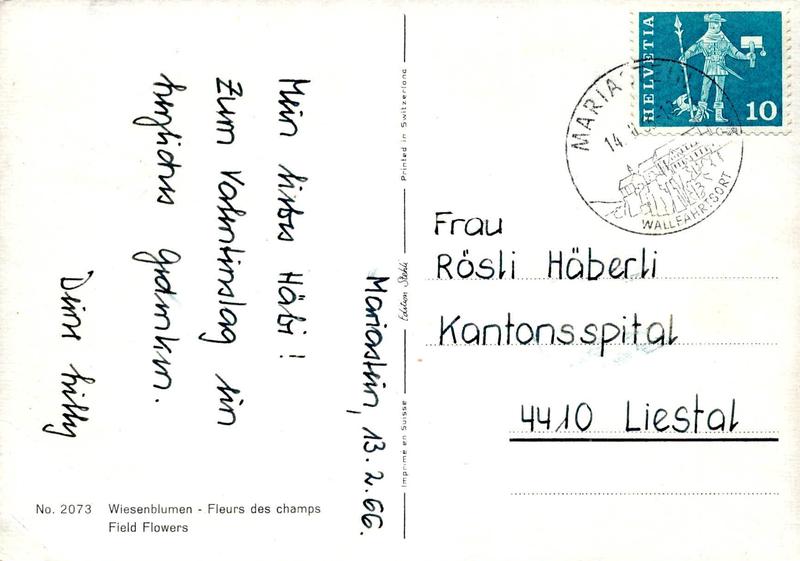 Mariastein, 13.2.66.
Mein liebes Häbi!
Zum Valentinstag ein
herzliches Gedenken.
Deine Lilly
No. 2073 Wiesenblumen - Fleurs des champs
Field Flowers
Imprimé en Suisse Edition Stehli Printed in Switzerland
HELVETIA
10
MARIASTEIN
14.
WALLFAHRTSORT
Frau
Rösli Häberli
Kantonsspital
4410 Liestal